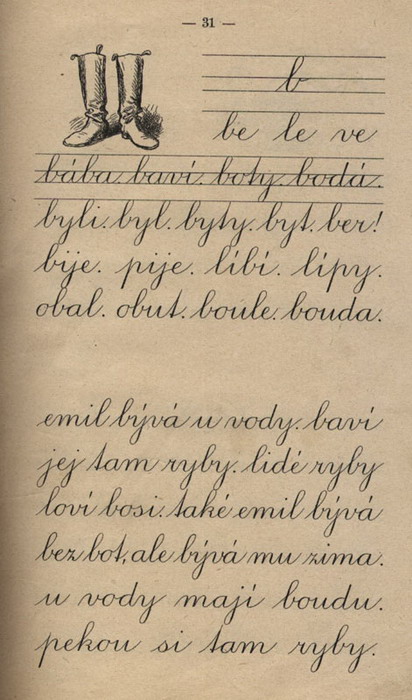 — 31 —
b
be le ve
bába. baví. boty. bodá.
byli. byl. byty. byt. ber!
bije. pije. líbí. lípy.
obal. obut. boule. bouda.
emil bývá u vody. baví
jej tam ryby. lidé ryby
loví bosi. také emil bývá
bez bot, ale bývá mu zima.
u vody mají boudu.
pekou si tam ryby.